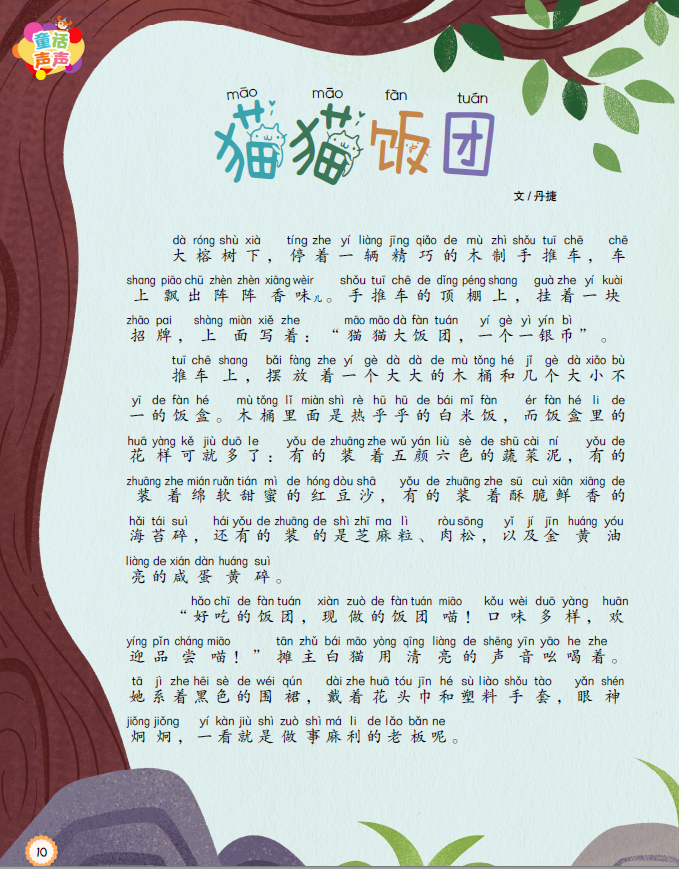 童话
声声
māo māo fàn tuán
猫猫饭团
文/丹捷
dà róng shù xià tíng zhe yí liàng jīng qiǎo de mù zhì shǒu tuī chē chē
大榕树下，停着一辆精巧的木制手推车，车
shang piāo chū zhèn zhèn xiāng wèir shǒu tuī chē de dǐng péng shang guà zhe yí kuài
上飘出阵阵香味儿。手推车的顶棚上，挂着一块
zhāo pai shàng miàn xiě zhe māo māo dà fàn tuán yí gè yì yín bì
招牌，上面写着：“猫猫大饭团，一个一银币”。
tuī chē shang bǎi fàng zhe yí gè dà dà de mù tǒng hé jǐ gè dà xiǎo bù
推车上，摆放着一个大大的木桶和几个大小不
yī de fàn hé mù tǒng lǐ miàn shì rè hū hū de bái mǐ fàn ér fàn hé li de
一的饭盒。木桶里面是热乎乎的白米饭，而饭盒里的
huā yàng kě jiù duō le yǒu de zhuāng zhe wǔ yán liù sè de shū cài ní yǒu de
花样可就多了：有的装着五颜六色的蔬菜泥，有的
zhuāng zhe mián ruǎn tián mì de hóng dòu shā yǒu de zhuāng zhe sū cuì xiān xiāng de
装着绵软甜蜜的红豆沙，有的装着酥脆鲜香的
hǎi tái suì hái yǒu de zhuāng de shì zhī ma lì ròu sōng yǐ jí jīn huáng yóu
海苔碎，还有的装的是芝麻粒、肉松，以及金黄油
liàng de xián dàn huáng suì
亮的咸蛋黄碎。
hǎo chī de fàn tuán xiàn zuò de fàn tuán miāo kǒu wèi duō yàng huān
“好吃的饭团，现做的饭团喵！口味多样，欢
yíng pǐn cháng miāo tān zhǔ bái māo yòng qīng liàng de shēng yīn yāo he zhe
迎品尝喵！”摊主白猫用清亮的声音吆喝着。
tā jì zhe hēi sè de wéi qún dài zhe huā tóu jīn hé sù liào shǒu tào yǎn shén
她系着黑色的围裙，戴着花头巾和塑料手套，眼神
jiǒng jiǒng yí kàn jiù shì zuò shì má li de lǎo bǎn ne
炯炯，一看就是做事麻利的老板呢。
10